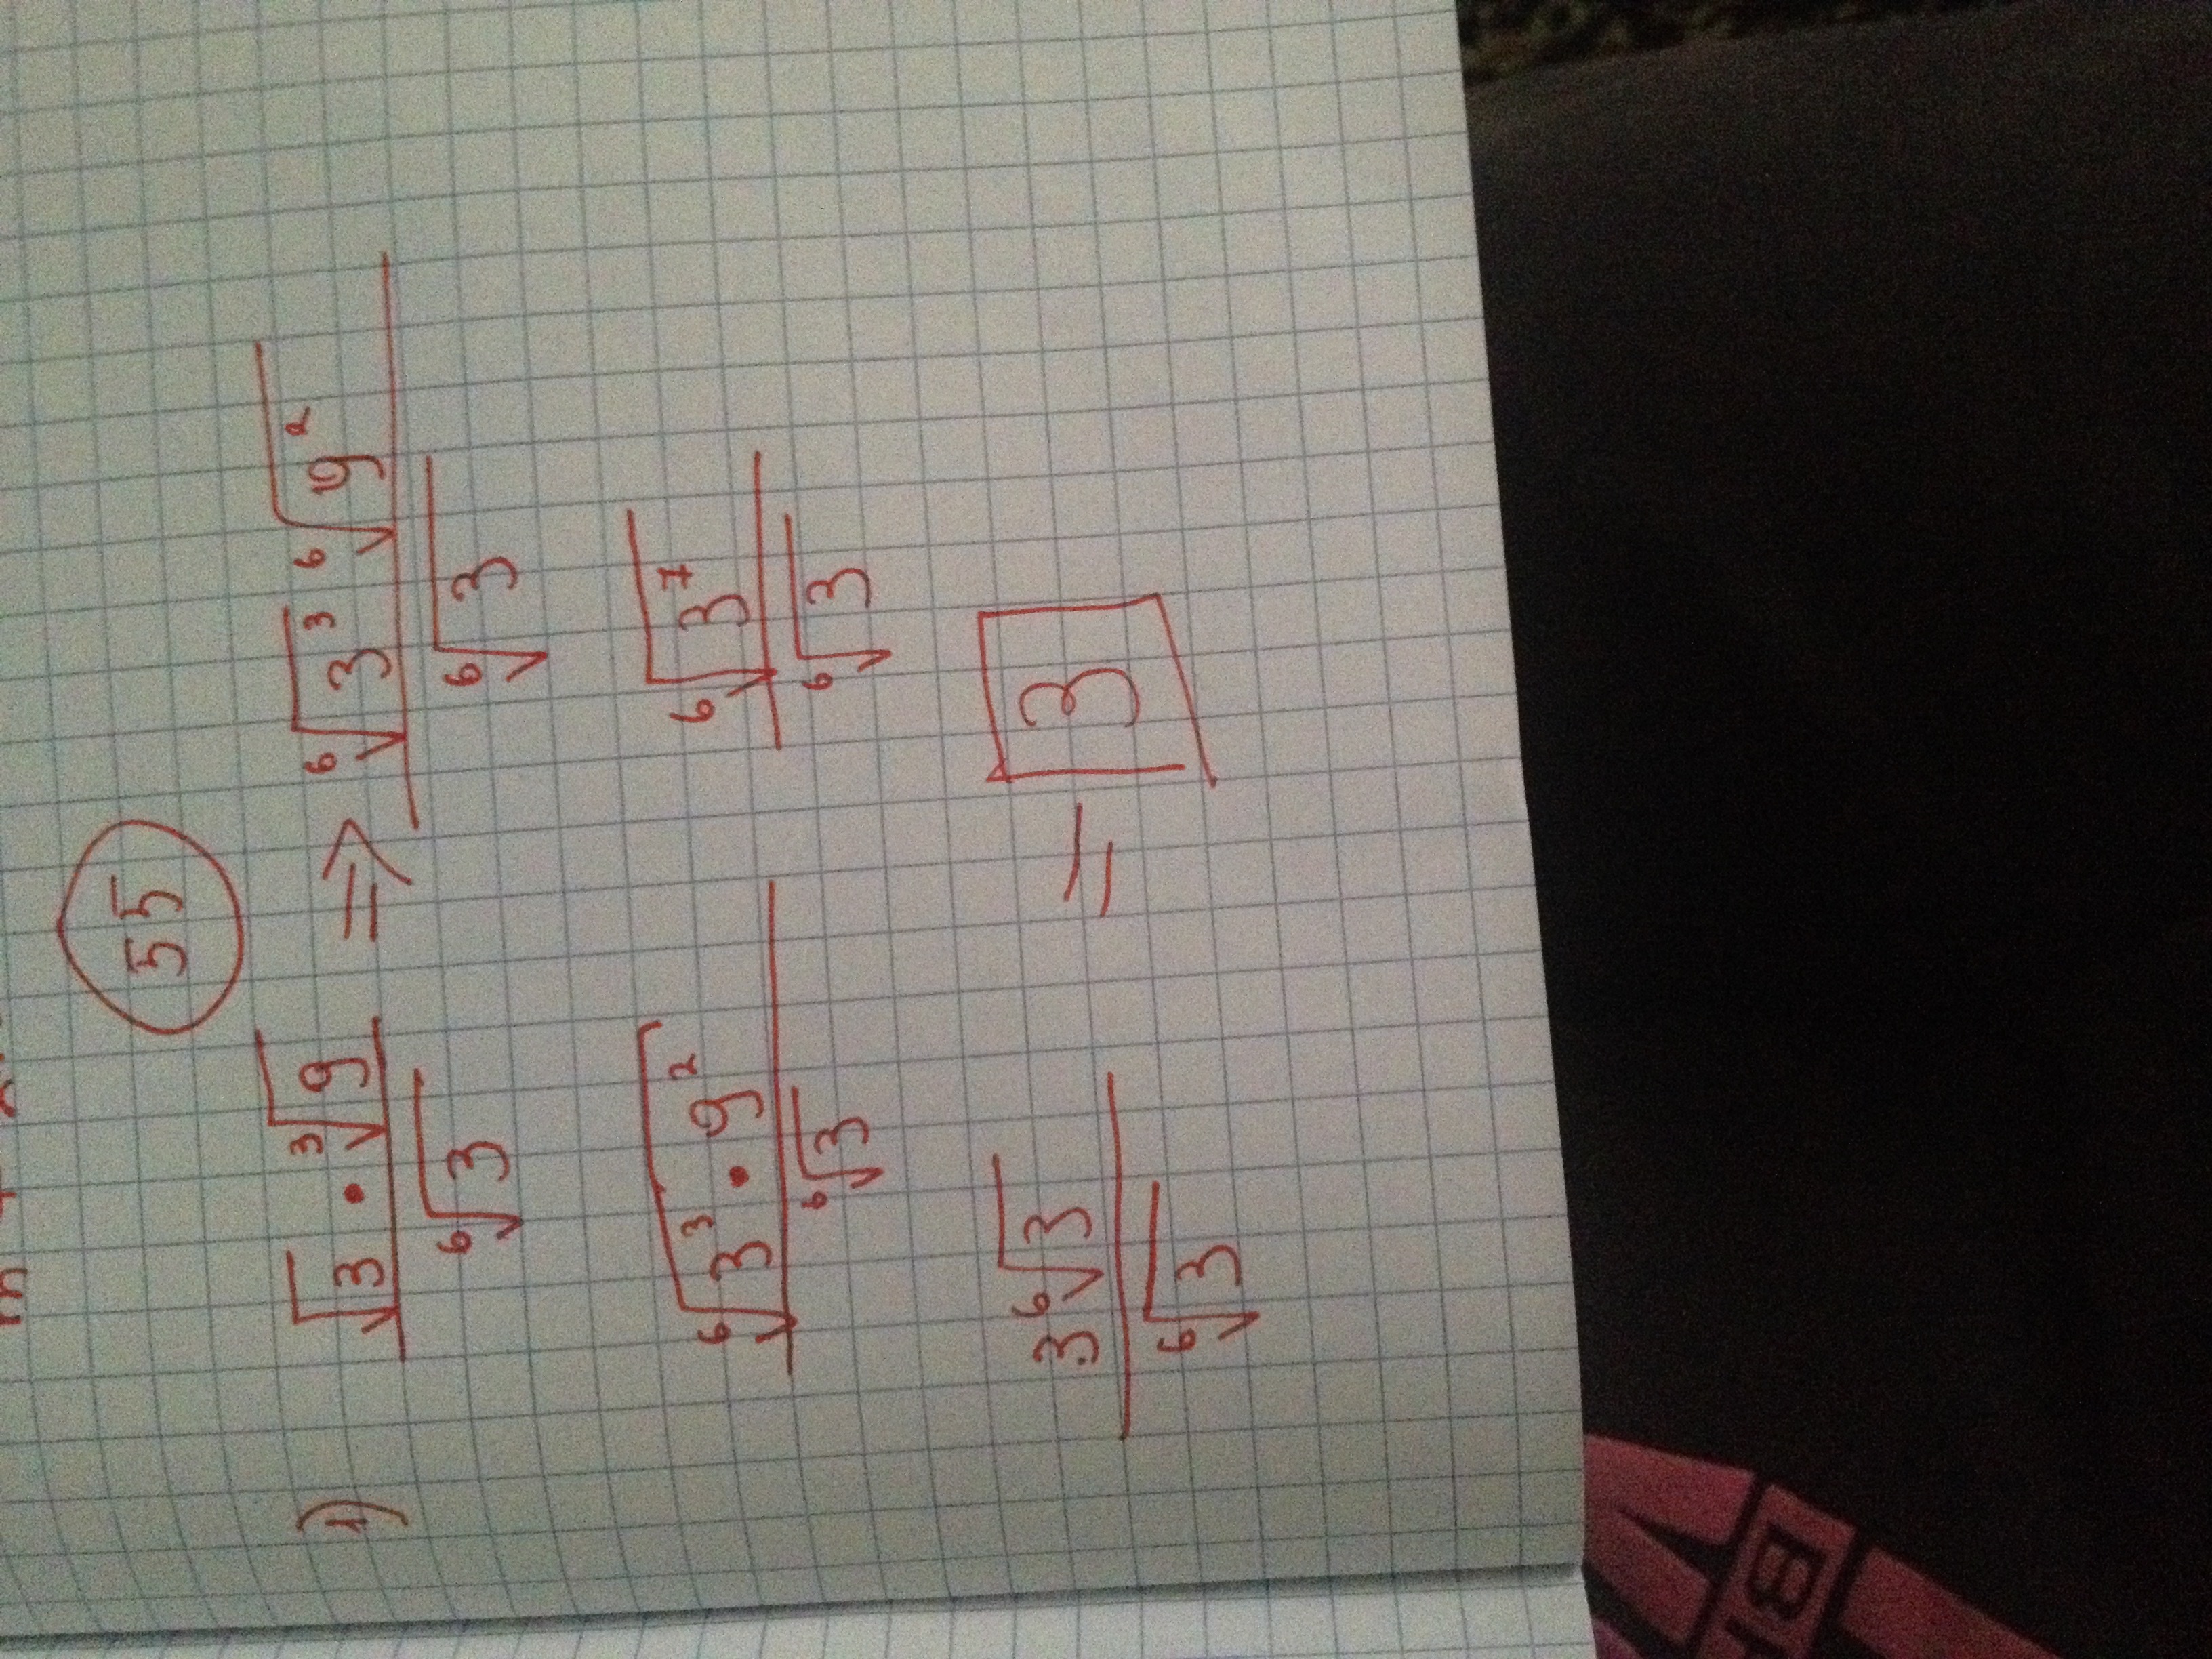 55
1) √3 · ³√9 / ⁶√3 ⇒ ⁶√3³ ⁶√9² / ⁶√3
⁶√3³ · 9² / ⁶√3 ⁶√3⁷ / ⁶√3
3 ⁶√3 / ⁶√3 = 3